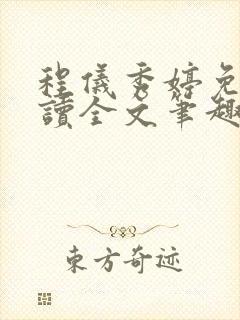 程儀秀婷免
讀全文筆趣
東方奇迹